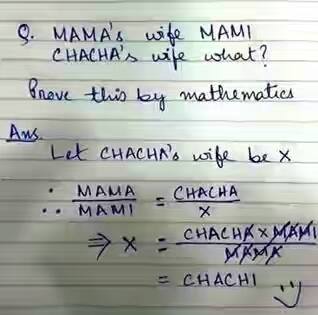 Q. MAMA's wife MAMI
CHACHA's wife what?
Prove this by mathematics
Ans.
Let CHACHA's wife be X
∴ MAMA/MAMI = CHACHA/X
⇒ X = CHACHA X MAMI/MAMA
= CHACHI